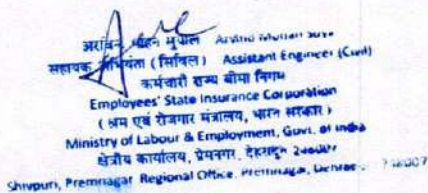 अरविन्द मोहन Arvind Mohan
सहायक अभियंता (सिविल) Assistant Engineer (Civil)
कर्मचारी राज्य बीमा निगम
Employees' State Insurance Corporation
(श्रम एवं रोजगार मंत्रालय, भारत सरकार)
Ministry of Labour & Employment, Govt. of India
क्षेत्रीय कार्यालय, प्रेमनगर, देहरादून
Shivpuri, Premnagar Regional Office, Premnagar,